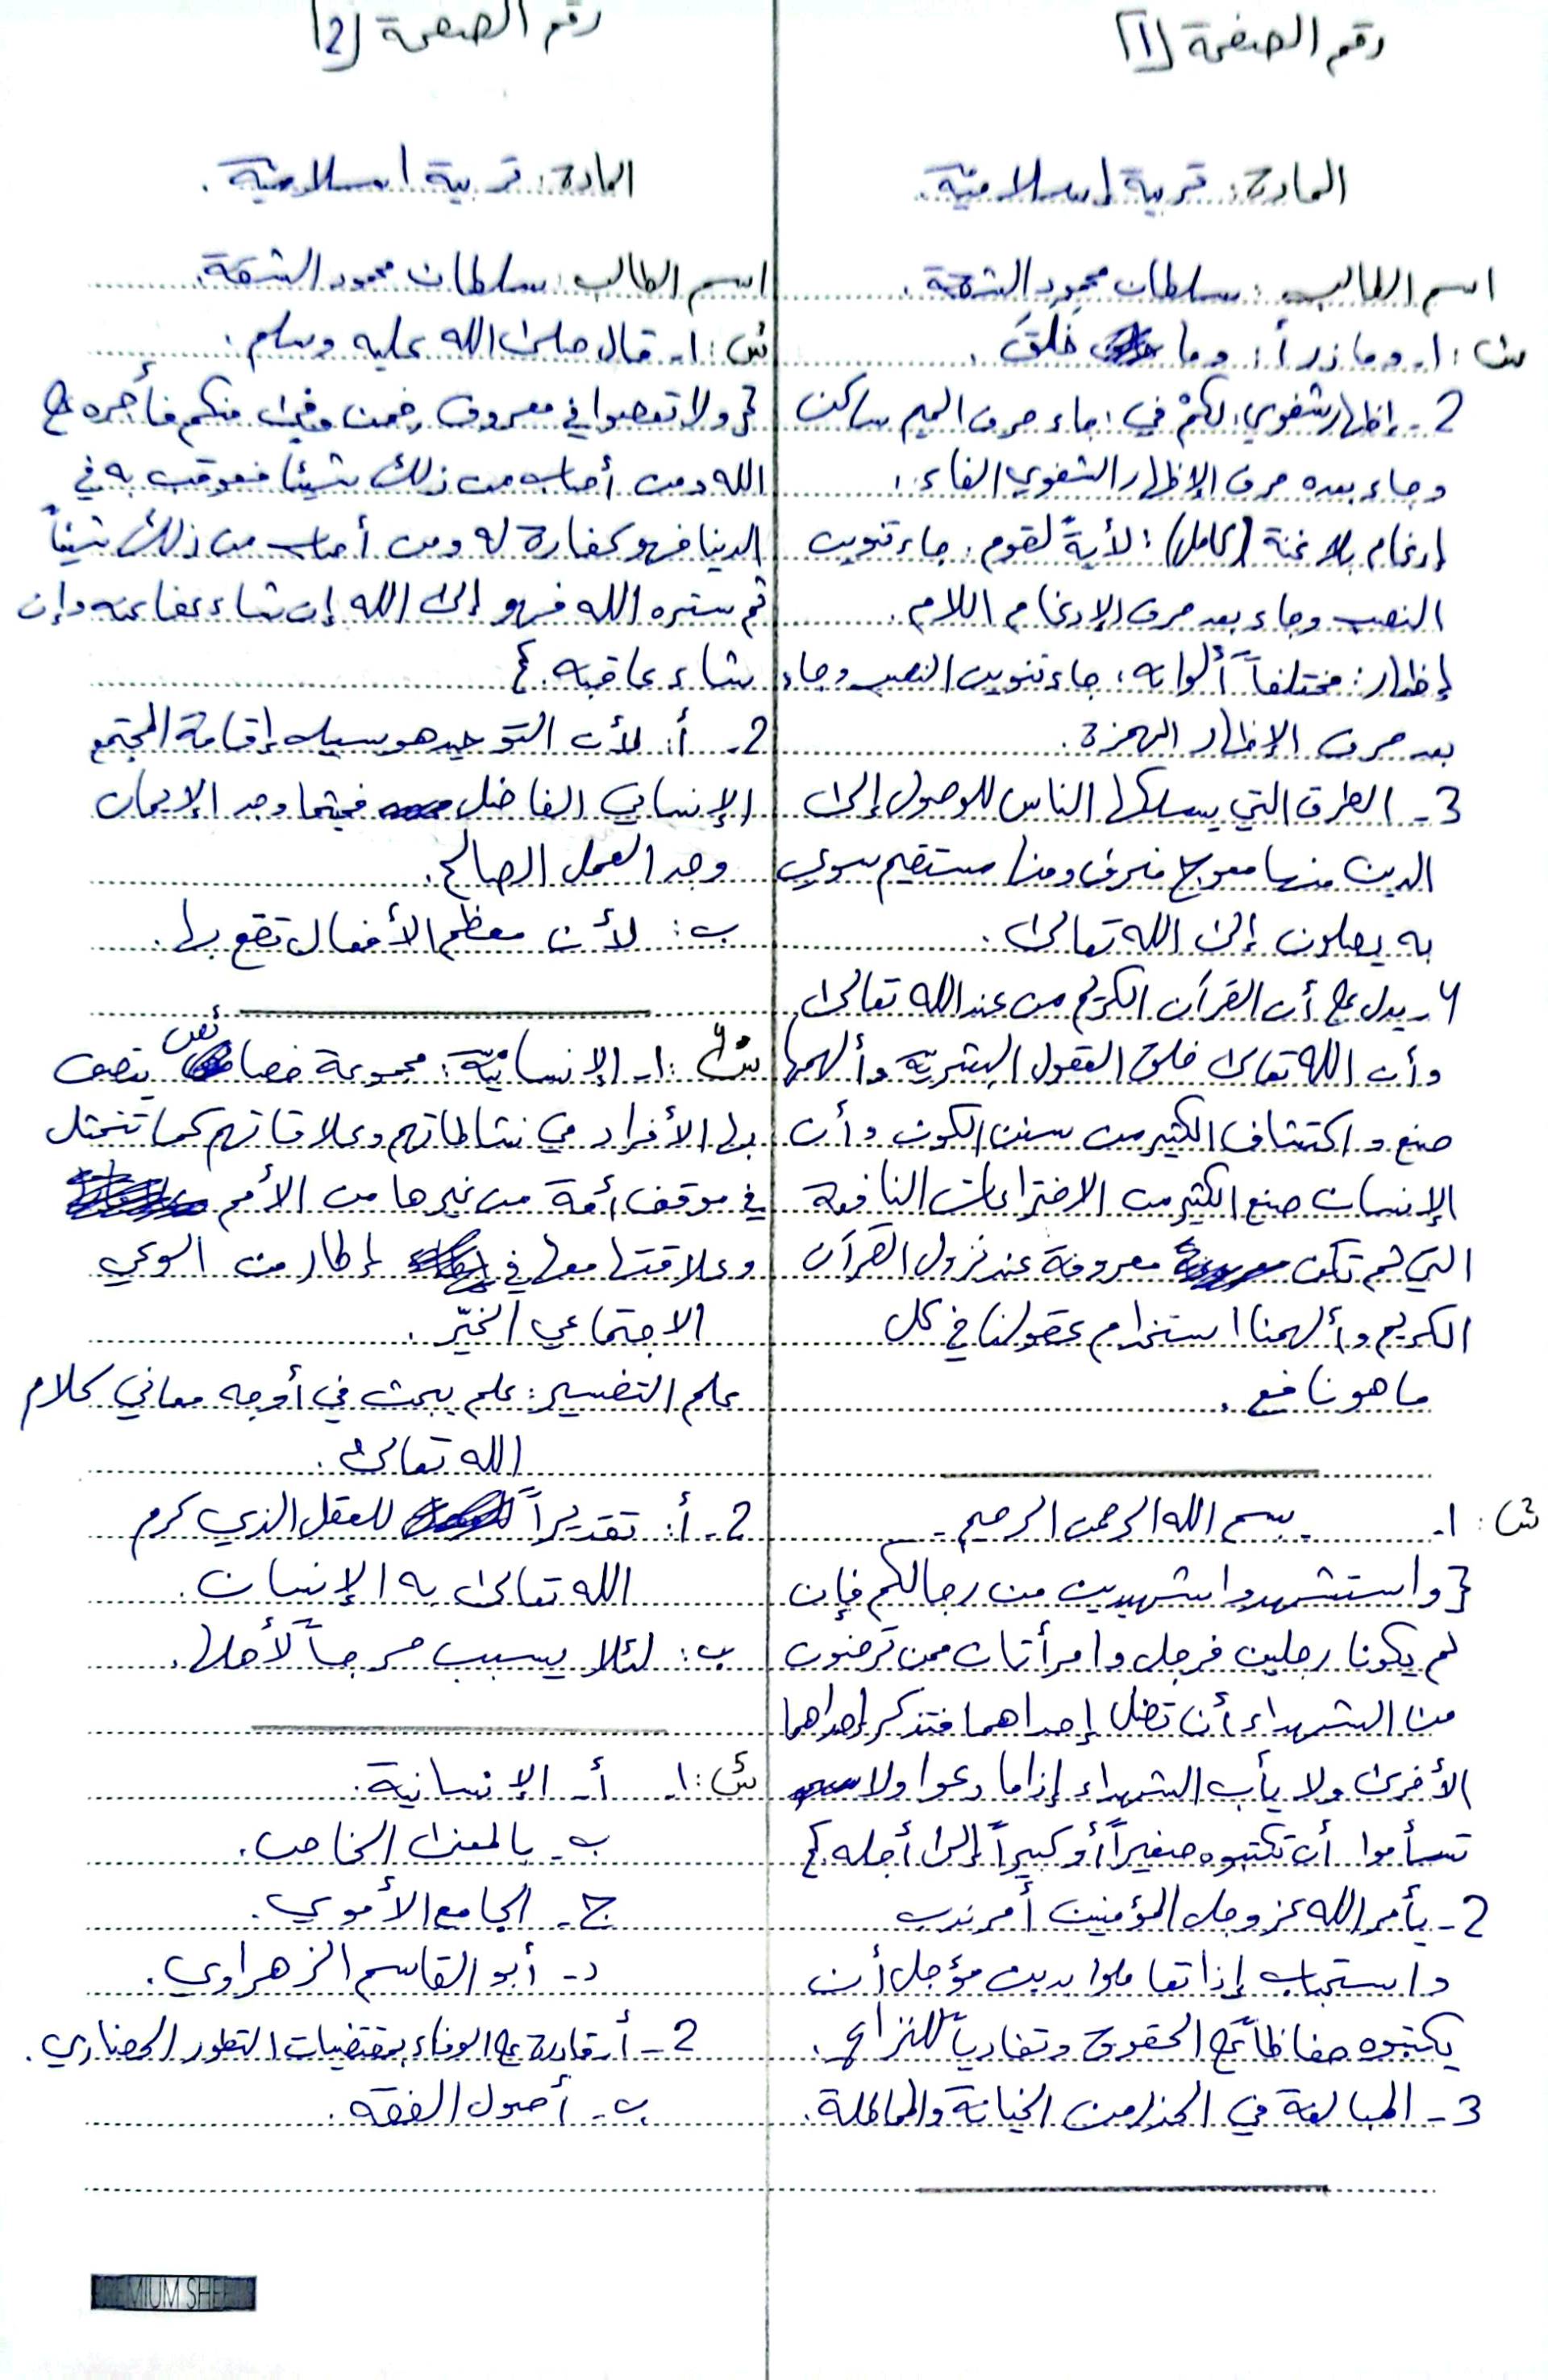 رقم الصفحة [1]
المادة: تربية إسلامية.
اسم الطالب: سلطان محمود الشقة.
س: 1- وما ذرأ: وما خَلَقَ.
2- إظهار شفوي: لكمْ في: جاء حرف الميم ساكن
وجاء بعده حرف الإظهار الشفوي الفاء.
إدغام بلا غنة (كامل): لأيةً لقوم: جاء تنوين
النصب وجاء بعد حرف الإدغام اللام.
إظهار: مختلفاً ألوانه: جاء تنوين النصب وجاء
بعد حرف الإظهار الهمزة.
3- الطرق التي يسلكها الناس للوصول إلى
الدين منها معوج منحرف ومنها مستقيم سوي
به يصلون إلى الله تعالى.
4- يدل على أن القرآن الكريم من عند الله تعالى
وأن الله تعالى خلق العقول البشرية وألهمها
صنع واكتشاف الكثير من سنن الكون وأن
الإنسان صنع الكثير من الاختراعات النافعة
التي لم تكن معروفة عند نزول القرآن
الكريم وألهمنا استخدام عقولنا في كل
ما هو نافع.
س: 1- بسم الله الرحمن الرحيم -
{واستشهدوا شهيدين من رجالكم فإن
لم يكونا رجلين فرجل وامرأتان ممن ترضون
من الشهداء أن تضل إحداهما فتذكر إحداهما
الأخرى ولا يأب الشهداء إذا ما دعوا ولا
تسأموا أن تكتبوه صغيراً أو كبيراً إلى أجله}
2- يأمر الله عز وجل المؤمنين أمر ندب
واستحباب إذا تعاملوا بدين مؤجل أن
يكتبوه حفاظاً على الحقوق وتفادياً للنزاع.
3- المبالغة في الحذر من الخيانة والمماطلة.
رقم الصفحة [2]
المادة: تربية إسلامية.
اسم الطالب: سلطان محمود الشقة.
س: 1- قال صلى الله عليه وسلم:
{ولا تعصوا في معروف فمن وفى منكم فأجره على
الله ومن أصاب من ذلك شيئا فعوقب به في
الدينا فهو كفارة له ومن أصاب من ذلك شيئاً
ثم ستره الله فهو إلى الله إن شاء عفا عنه وإن
شاء عاقبه}
2- أ: لأن التوحيد هو سبيل إقامة المجتمع
الإنساني الفاضل فحيثما وجد الإيمان
وجد العمل الصالح.
ب: لأن معظم الأفعال تقع بها.
س: 1- الإنسانية: مجموعة خصائص يتصف
بها الأفراد في نشاطاتهم وعلاقاتهم كما تتمثل
في موقف أمة من غيرها من الأمم
وعلاقتها معها في إطار من الوعي
الاجتماعي الخيّر.
علم التفسير: علم يبحث في أوجه معاني كلام
الله تعالى.
2- أ: تقديراً للعقل الذي كرم
الله تعالى به الإنسان.
ب: لئلا يسبب حرجاً لأهلها.
س: 1- أ- الإنسانية.
ب- بالمعنى الخاص.
ج- الجامع الأموي.
د- أبو القاسم الزهراوي.
2- أ- قادرة على الوفاء بمقتضيات التطور الحضاري.
ب- أصول الفقه.